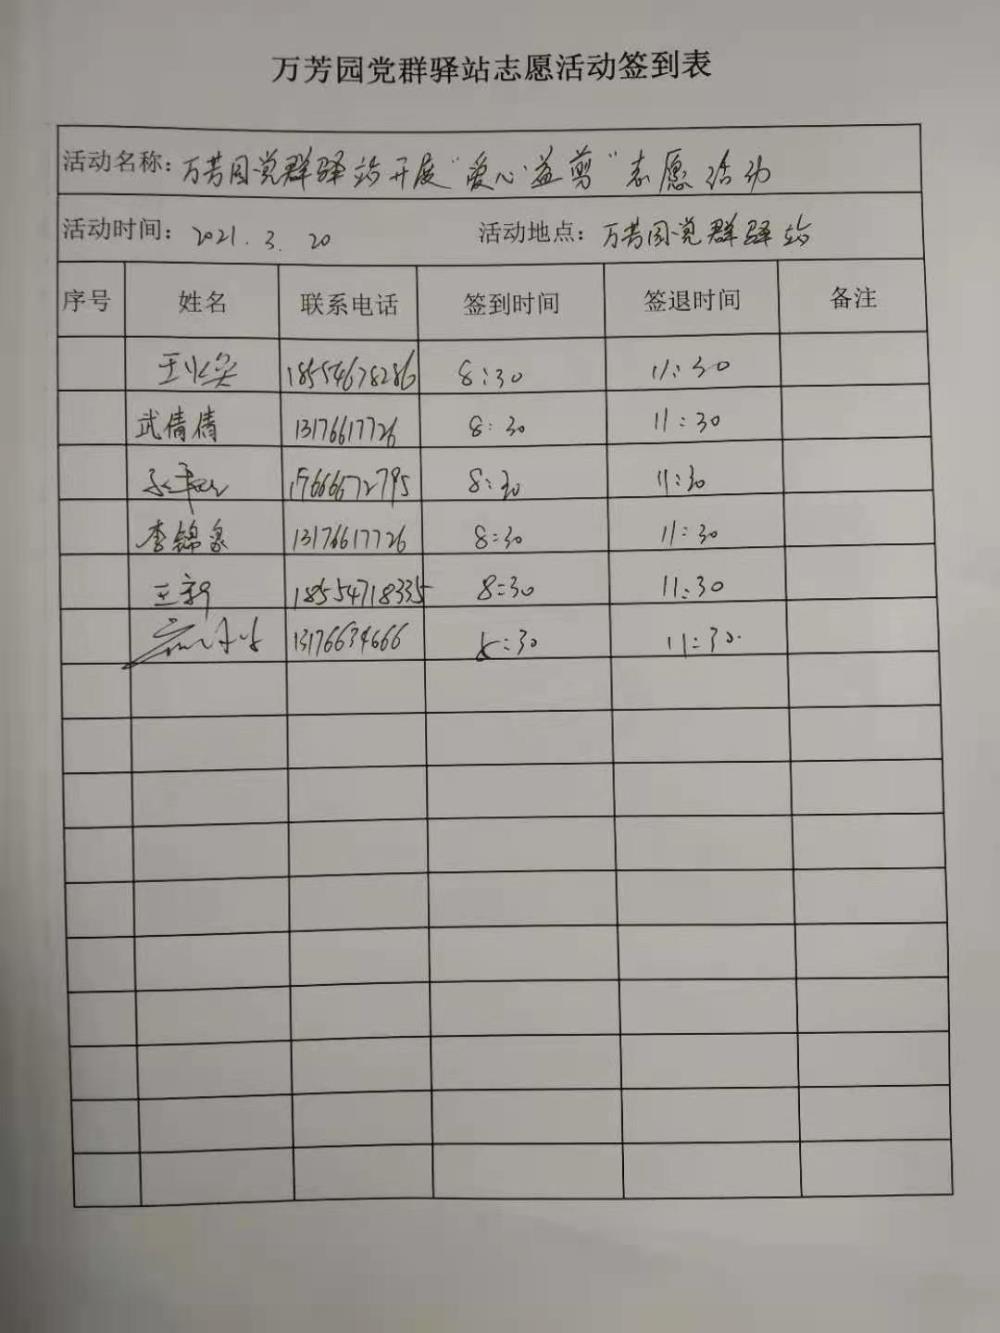 万芳园党群驿站志愿活动签到表
活动名称：万芳园党群驿站开展“爱心益剪”志愿活动
活动时间：2021.3.20 活动地点：万芳园党群驿站
序号 姓名 联系电话 签到时间 签退时间 备注
18554678286 8:30 11:30
武倩倩 13176617726 8:30 11:30
8:30 11:30
李锦泉 13176617726 8:30 11:30
王新 18554718335 8:30 11:30
13176634666 8:30 11:30